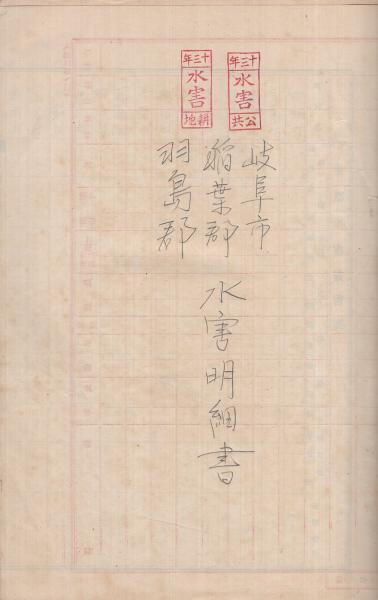 十三年
水害
公共
十三年
水害
耕地
岐阜市
稲葉郡
羽島郡
水害明細書